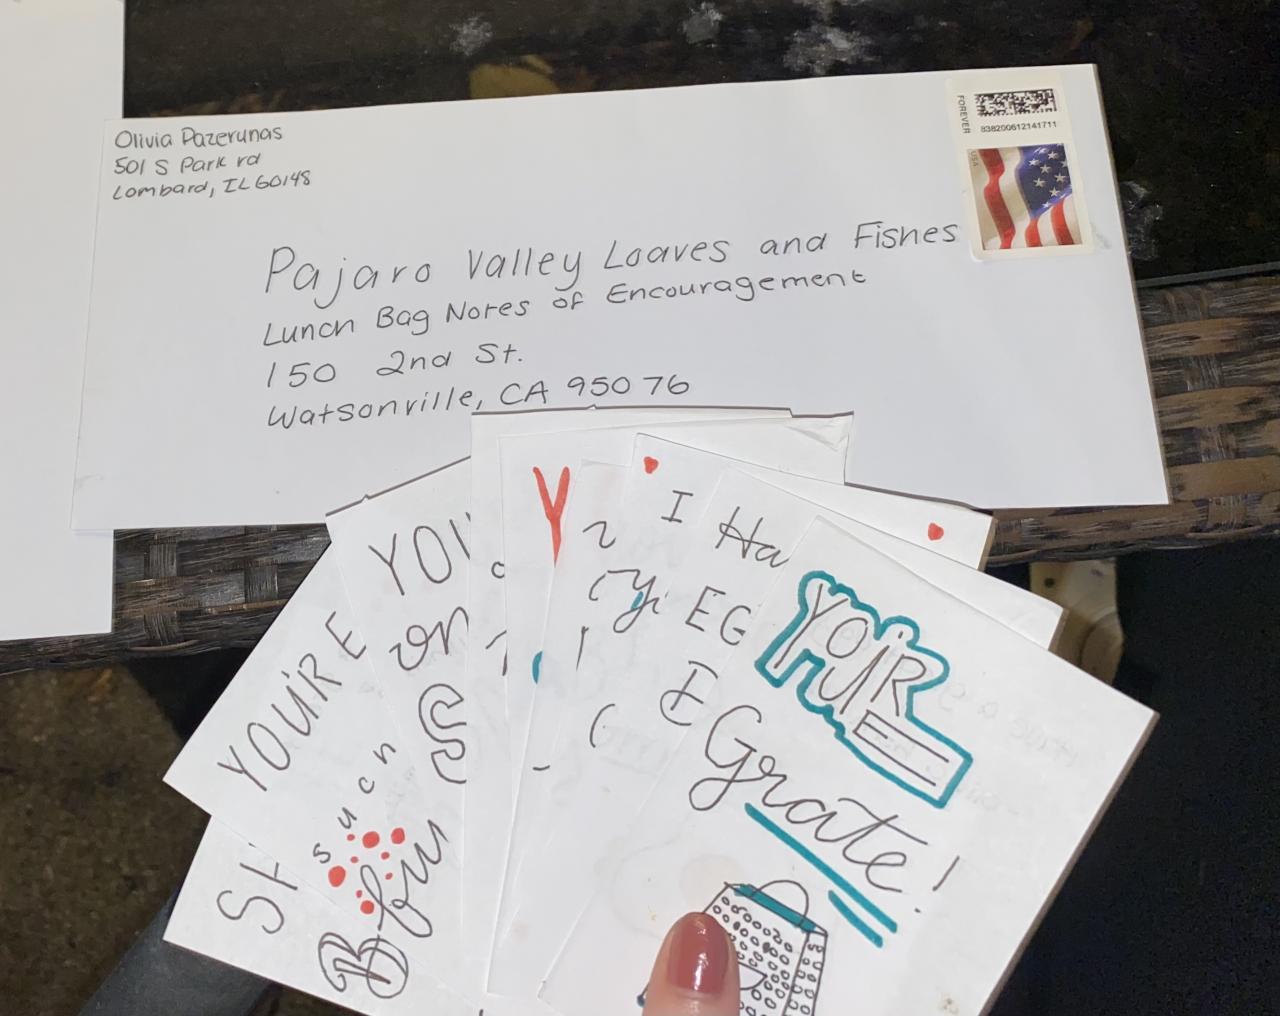 Olivia Pazerunas
501 S Park rd
Lombard, IL 60148
FOREVER
838200612141711
USA
Pajaro Valley Loaves and Fishes
Lunch Bag Notes of Encouragement
150 2nd St.
Watsonville, CA 95076
YOU'RE
such
YOU
on
S
Y
I
Ha
EG
E
YOU'RE
Grate!